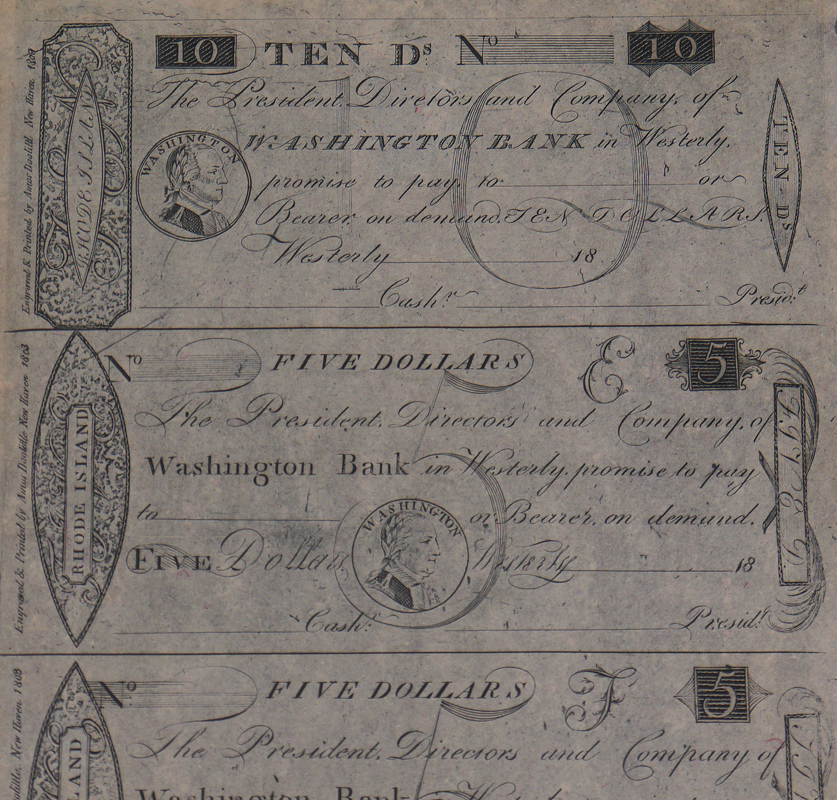 Engraved & Printed by Amos Doolittle New Haven 1809
RHODE ISLAND
10 TEN Ds No 10
The President, Diretors and Company, of
WASHINGTON BANK in Westerly.
WASHINGTON
promise to pay to or
Bearer on demand. TEN DOLLARS.
Westerly 18
Cashr. Presidt.
TEN Ds
Engraved & Printed by Amos Doolittle New Haven 1803
RHODE ISLAND
No FIVE DOLLARS E 5
The President, Directors and Company, of
Washington Bank in Westerly, promise to pay
to or Bearer, on demand.
WASHINGTON
FIVE Dollars Westerly 18
Cashr. Presidt.
FIVE
Doolittle. New Haven. 1803
LAND
No FIVE DOLLARS F 5
The President, Directors and Company of
Washington Bank